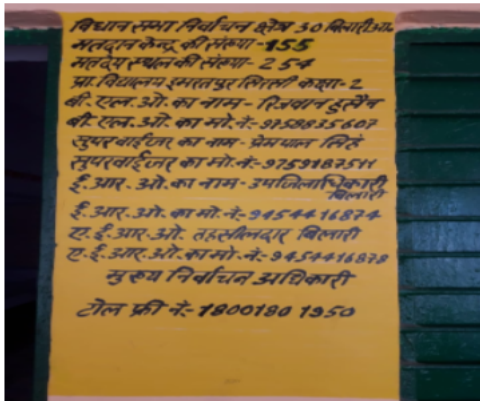 विधान सभा निर्वाचन क्षेत्र 30 बिलारी
मतदान केन्द्र की संख्या-155
मतदेय स्थल की संख्या- 254
प्रा. विद्यालय इमरतपुर सिरसी कक्षा-2
बी.एल.ओ.का नाम- रिजवान हुसैन
बी.एल.ओ.का मो.नं:-9758835607
सुपरवाईजर का नाम-प्रेमपाल सिंह
सुपरवाईजर का मो.नं:-9759187511
ई.आर.ओ.का नाम-उपजिलाधिकारी
बिलारी
ई.आर.ओ.का मो.नं:-9454416874
ए.ई.आर.ओ. तहसीलदार बिलारी
ए.ई.आर.ओ.का मो.नं:-9454416878
मुख्य निर्वाचन अधिकारी
टोल फ्री नं:-1800180 1950